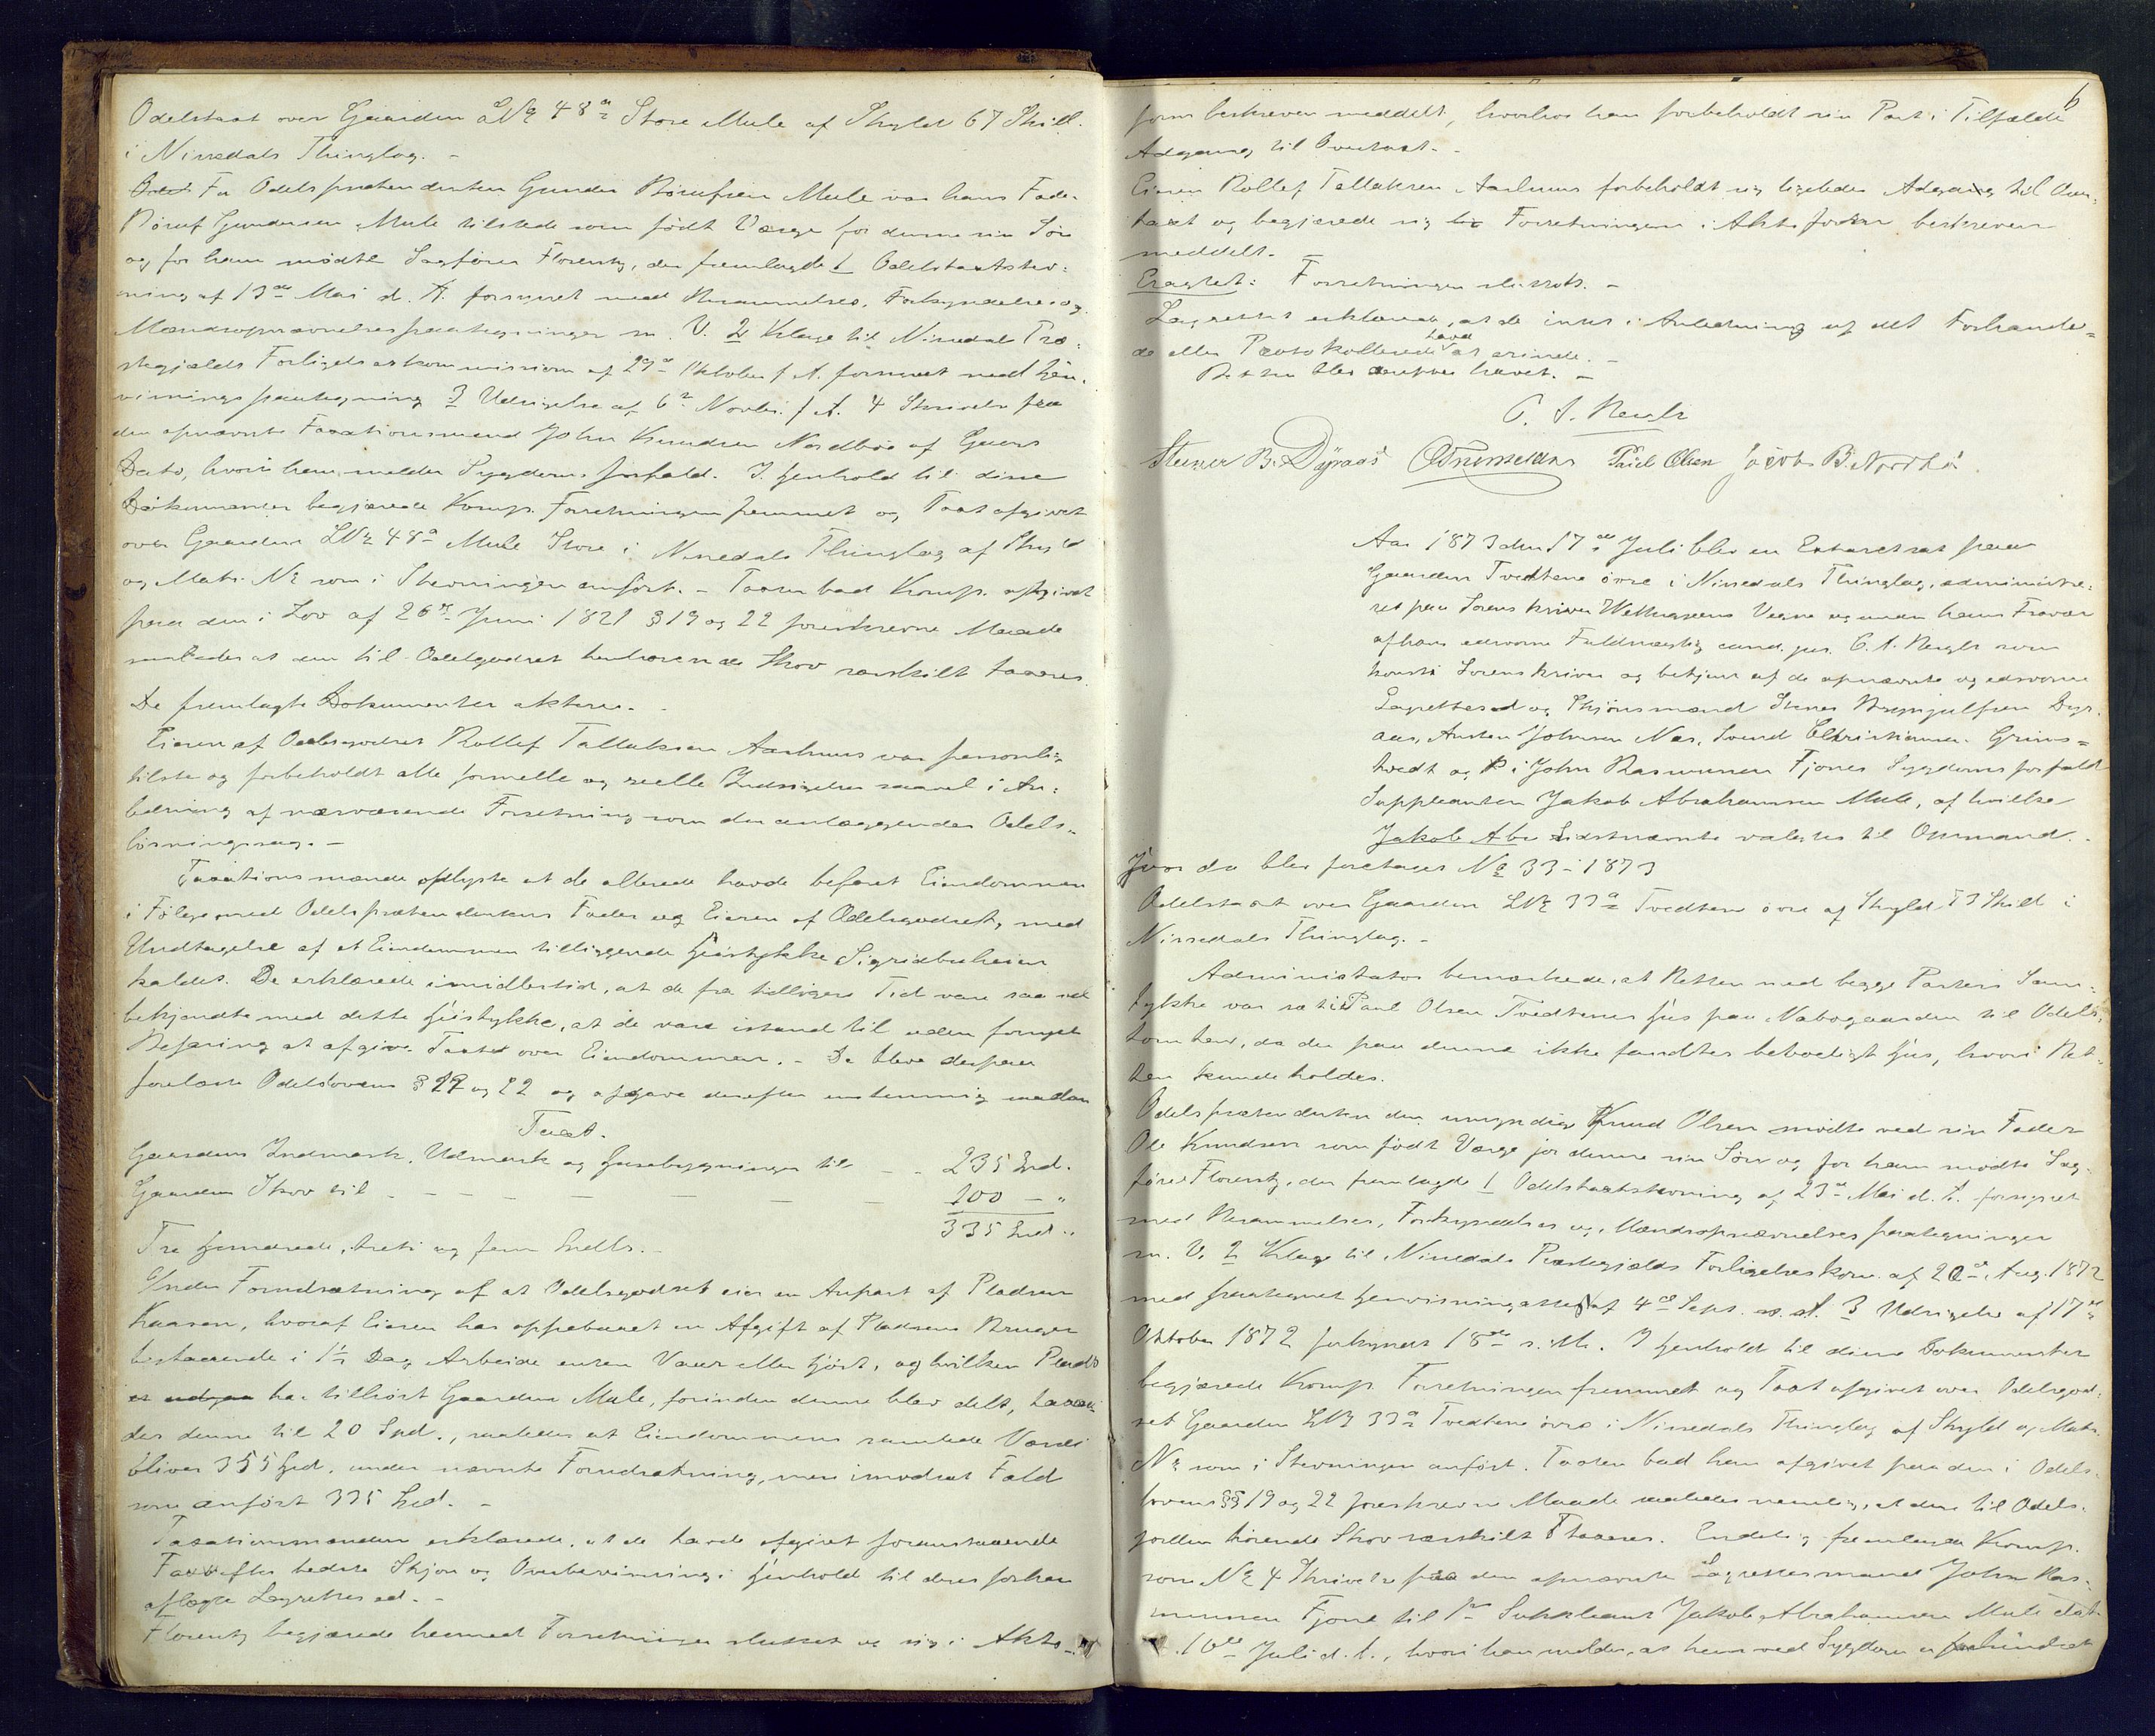 Odelstaxt over Gaarden LNo 48a Store Mule af Skyld 67 Skill.
i Nissedals Thinglag. –
For Odelsprætendenten Gunder Rörufsen Mule var hans Fader
Röruf Gundersen Mule tilstede som födt Værge for denne sin Sön
og for ham mödte Sagförer Florentz, der fremlagde 1 Odelstaxtstev-
ning af 13de Mai d. A. forsynet med Berammelses, Forkyndelses og
Mændsopnævnelsespaategninger m. V. 2 Klage til Nissedal Præ-
stegjælds Forligelseskommission af 29de Oktober f. A. forsynet med Hen-
visningspaategning 3 Udsigelse af 6te Novbr. f. A. 4 Skrivelse fra
den opnævnte Taxationsmand John Knudsen Nordbö af Gaars
Dato, hvori han melder Sygdoms forfald. I Henhold til disse
Dokumenter begjærede Komp. Forretningen fremmet og Taxt afgivet
over Gaarden LNo 48a Mule Store i Nissedals Thinglag af Skyld
og Matr. No som i Stevningen anfört. – Taxten bad Komp. afgivet
paa den i Lov af 26de Juni 1821 § 19 og 22 foreskrevne Maade
saaledes at den til Odelsgodset henhörende Skov særskilt taxeres.
De fremlagte Dokumenter akteres. –
Eieren af Odelsgodset Rollef Tallaksen Aarhuus var personlig
tilstede og forbeholdt alle formelle og reelle Indsigelser saavel i An-
ledning af nærværende Forretning som den anlæggendes Odels-
lösningssag. –
Taxationsmændene oplyste at de allerede havde befaret Eiendommen
i Fölge med Odelsprætendentens Fader og Eieren af Odelsgodset, med
Undtagelse af et Eiendommen tilliggende Heistykke Sigridbuheien
kaldet. De erklærede imidlertid, at de fra tidligere Tid vare saa vel
bekjendte med dette Heistykke, at de vare istand til uden fornyet
Befaring at afgive Taxt over Eiendommen. – De bleve derpaa
forelæste Odelslovens § 19 og 22 og afgave derefter enstemmig saadan
Taxt.
Gaardens Indmark, Udmark og Husebygninger til – – 235 Spd.
Gaardens Skov til – – – – – – 100 – „
335 Spd. „
Tre Hundrede, treti og fem Spdlr. –
Under Forudsætning af at Odelsgodset eier en Anpart af Pladsen
Kaasen, hvoraf Eieren har oppebaaret en Afgift af Pladsens Bruger
bestaaende i 1½ Dag Arbeide enten Vaar eller Höst, og hvilken Plads
har tilhört Gaarden Mule, forinden denne blev delt, taxe-
des denne til 20 Spd., saaledes at Eiendommens samlede Værdi
bliver 355 Spd. under nævnte Forudsætning, men i modsat Fald
som anfört 335 Spd. –
Taxationsmændene erklærede, at de havde afgivet foranstaaende
Taxt efter bedste Skjön og Overbevisning i Henhold til deres forhen
aflagte Lagrettesed. –
Florentz begjærede hermed Forretningen sluttet og sig i Akts-
6
form beskreven meddelt, hvorhos han forbeholdt sin Part i Tilfælde
Adgang til Overtaxt. –
Eieren Rollef Tallaksen Aarhuus forbeholdt sig ligeledes Adgang til Over-
taxt og begjærede sig Forretningen i Akts form beskreven
meddelt. –
Eragtet: Forretningen sluttes. –
Lagrettet erklærede, at de intet i Anledning af det Forhandle-
de eller Protokollerede havde at erindre. –
Retten blev derpaa hævet. –
C. A. Neugle
Steener B. Dÿraas Paül Olsen Jacob B. Nordbö
Aar 1873 den 17de Juli blev en Extraret sat paa
Gaarden Tvedtene övre i Nissedals Thinglag, administre-
ret paa Sorenskriver Wetlesens Vegne og under hans Fravær
af hans edsvorne Fuldmægtig cand. jur. C. A. Neugle som
konst. Sorenskriver og betjent af de opnævnte og edsvorne
Lagrettes- og Skjönsmænd Stener Bryngjulfsen Dyr-
aas, Austen Johnsen Næs, Svend Christiansen Grims-
tvedt og i John Rasmussen Fjones Sygdomsforfald
Suppleanten Jakob Abrahamsen Mule, af hvilke
Jakob Abr Sidstnævnte valgtes til Opmand. –
Hvor da blev foretaget No 33 – 1873
Odelstaxt over Gaarden LNo 33a Tvedtene övre af Skyld 53 Skill i
Nissedals Thinglag. –
Administrator bemærkede, at Retten med begge Parters Sam-
tykke var sat i Paul Olsen Tvedtenes Hus paa Nabogaarden til Odels-
tomten, da der paa denne ikke fandtes beboeligt Hus, hvori Ret-
ten kunde holdes.
Odelsprætendenten den umyndige Knud Olsen mödte ved sin Fader
Ole Knudsen som födt Værge for denne sin Sön og for ham mödte Sag-
förer Florentz, der fremlagde 1 Odelstaxtstevning af 23de Mai d. A. forsynet
med Berammelses, Forkyndelses og Mændsopnævnelsespaategninger
m. V. 2 Klage til Nissedals Præstegjælds Forligelseskom. af 20de Aug. 1872
med paategnet Henvisningsattest af 4de Septr. s. A. 3 Udsigelse af 17de
Oktober 1872 forkyndt 18de s. M. I Henhold til disse Dokumenter
begjærede Komp. Forretningen fremmet og Taxt afgivet over Odelsgod-
set Gaarden LNo 33a Tvedtene övre i Nissedals Thinglag af Skyld og Matr.
No som i Stevningen anfört. Taxten bad han afgivet paa den i Odels-
lovens §§ 19 og 22 foreskrevne Maade saaledes nemlig, at den til Odels-
jorden hörende Skov særskilt taxeres. Endelig fremlagde Komp.
som No 4 Skrivelse fra den opnævnte Lagrettesmand John Ras-
mussen Fjone til 1ste Suppleant Jakob Abrahamsen Mule dat.
16de Juli d. A., hvori han melder, at han ved Sygdom er forhindret